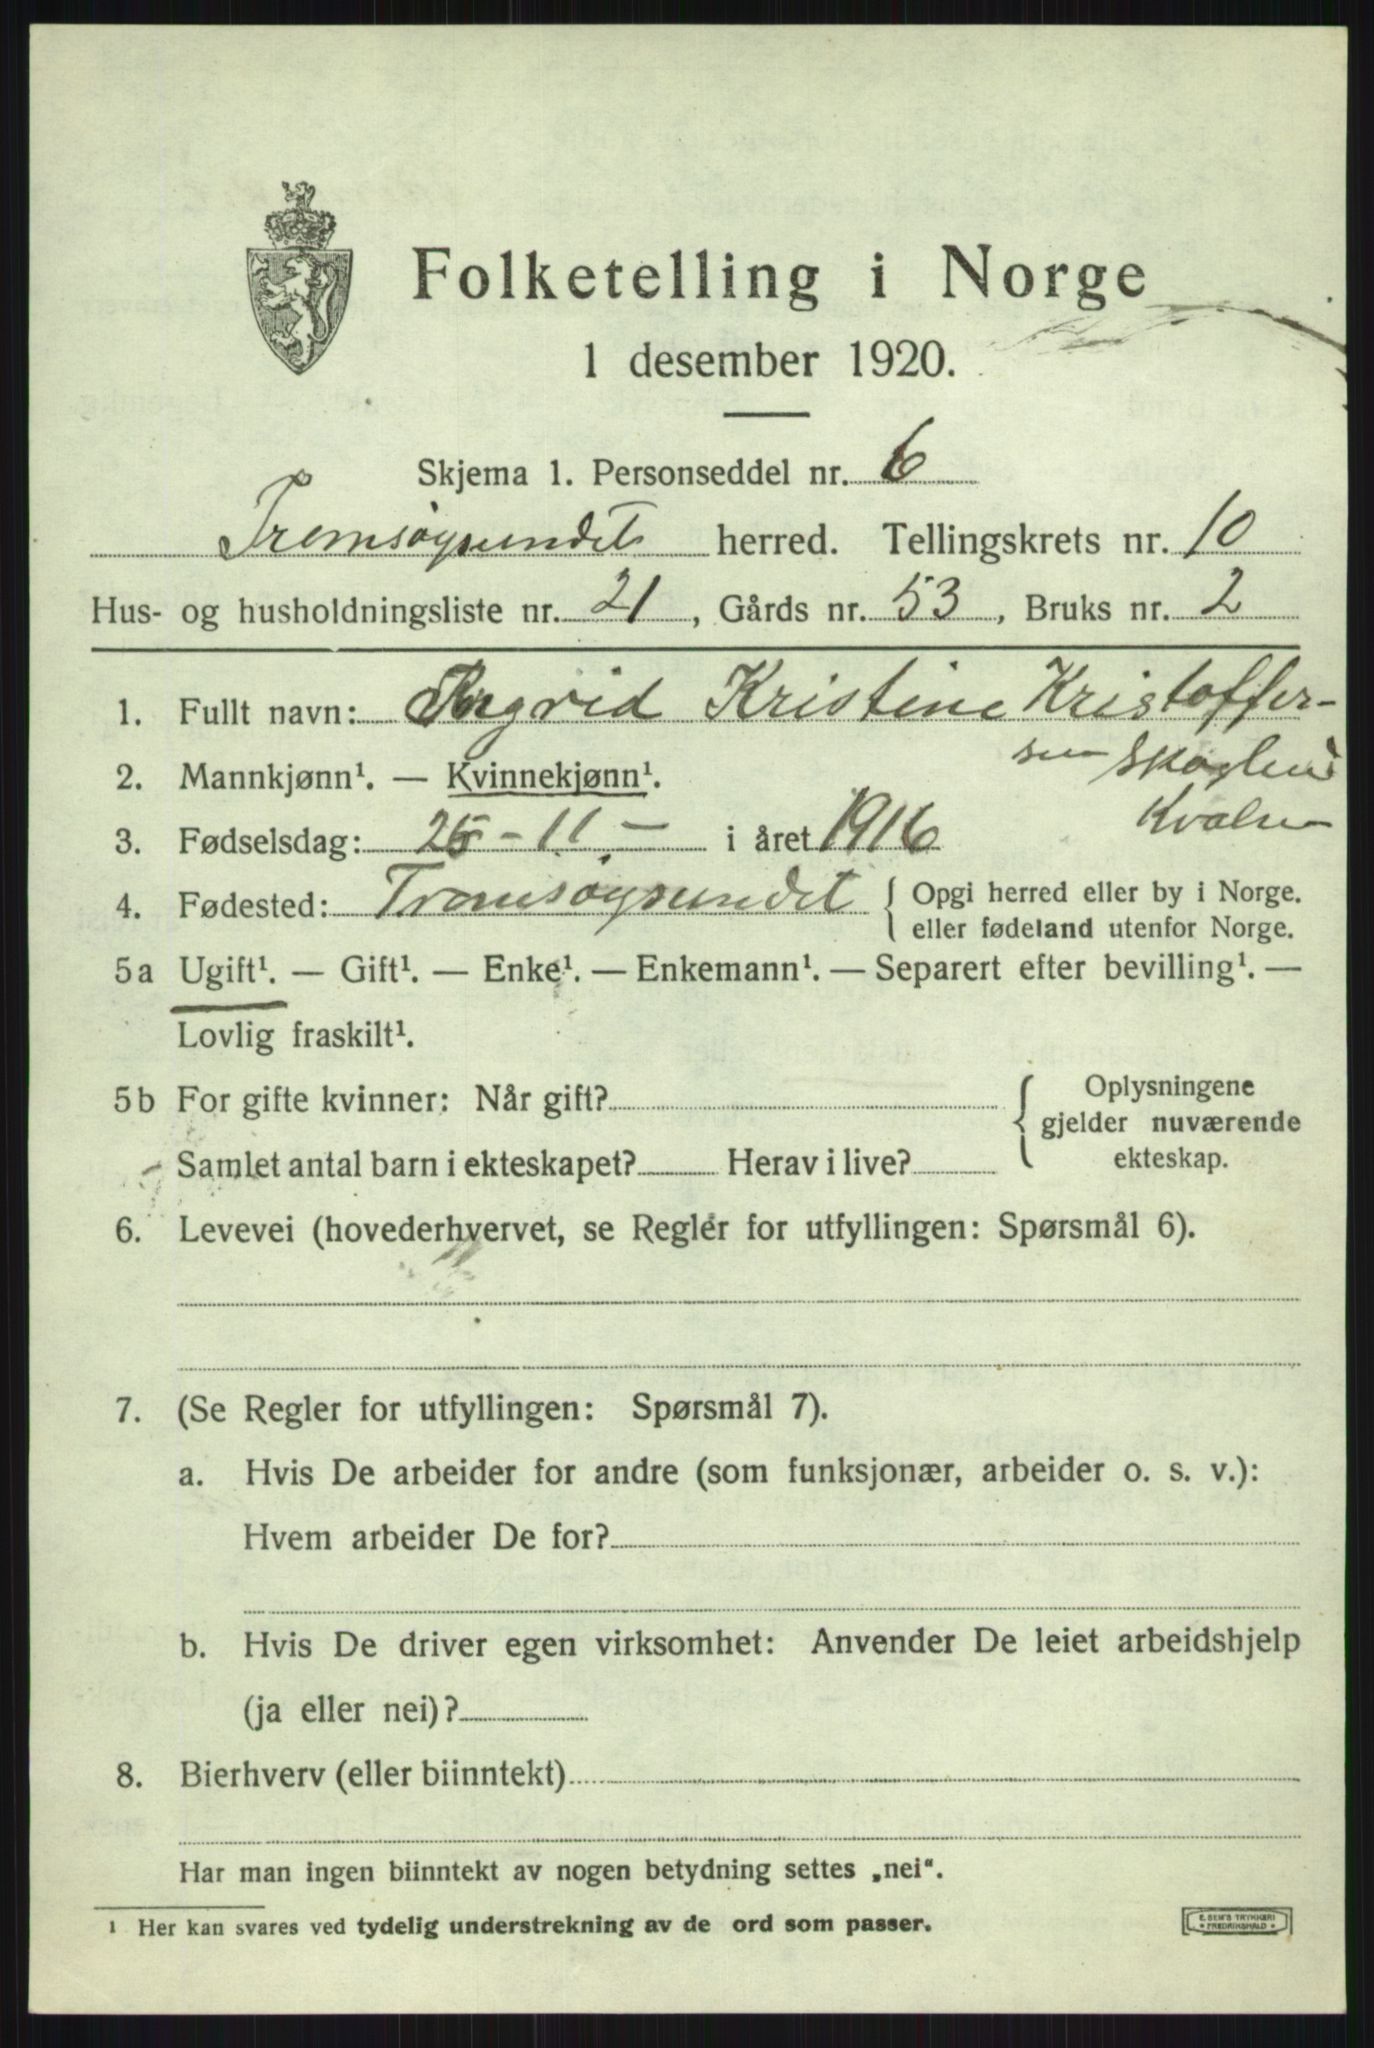 Folketelling i Norge
1 desember 1920.
Skjema 1. Personseddel nr. 6
Tromsøysundet herred. Tellingskrets nr. 10
Hus- og husholdningsliste nr. 21, Gårds nr. 53, Bruks nr. 2
1. Fullt navn: Ingrid Kristine Kristoffer-
sen Skoglund
2. Mannkjønn¹. — Kvinnekjønn¹.
Kvalsn
3. Fødselsdag: 25 - 11. — i året 1916
4. Fødested: Tromsøysundet { Opgi herred eller by i Norge.
eller fødeland utenfor Norge.
5a Ugift¹. — Gift¹. — Enke¹. — Enkemann¹. — Separert efter bevilling¹. —
Lovlig fraskilt¹.
5b For gifte kvinner: Når gift? { Oplysningene
gjelder nuværende
ekteskap.
Samlet antal barn i ekteskapet? Herav i live?
6. Levevei (hovederhvervet, se Regler for utfyllingen: Spørsmål 6).
7. (Se Regler for utfyllingen: Spørsmål 7).
a. Hvis De arbeider for andre (som funksjonær, arbeider o. s. v.):
Hvem arbeider De for?
b. Hvis De driver egen virksomhet: Anvender De leiet arbeidshjelp
(ja eller nei)?
8. Bierhverv (eller biinntekt)
Har man ingen biinntekt av nogen betydning settes „nei“.
¹ Her kan svares ved tydelig understrekning av de ord som passer.
E. SEM'S TRYKKERI
* FREDRIKSHALD *